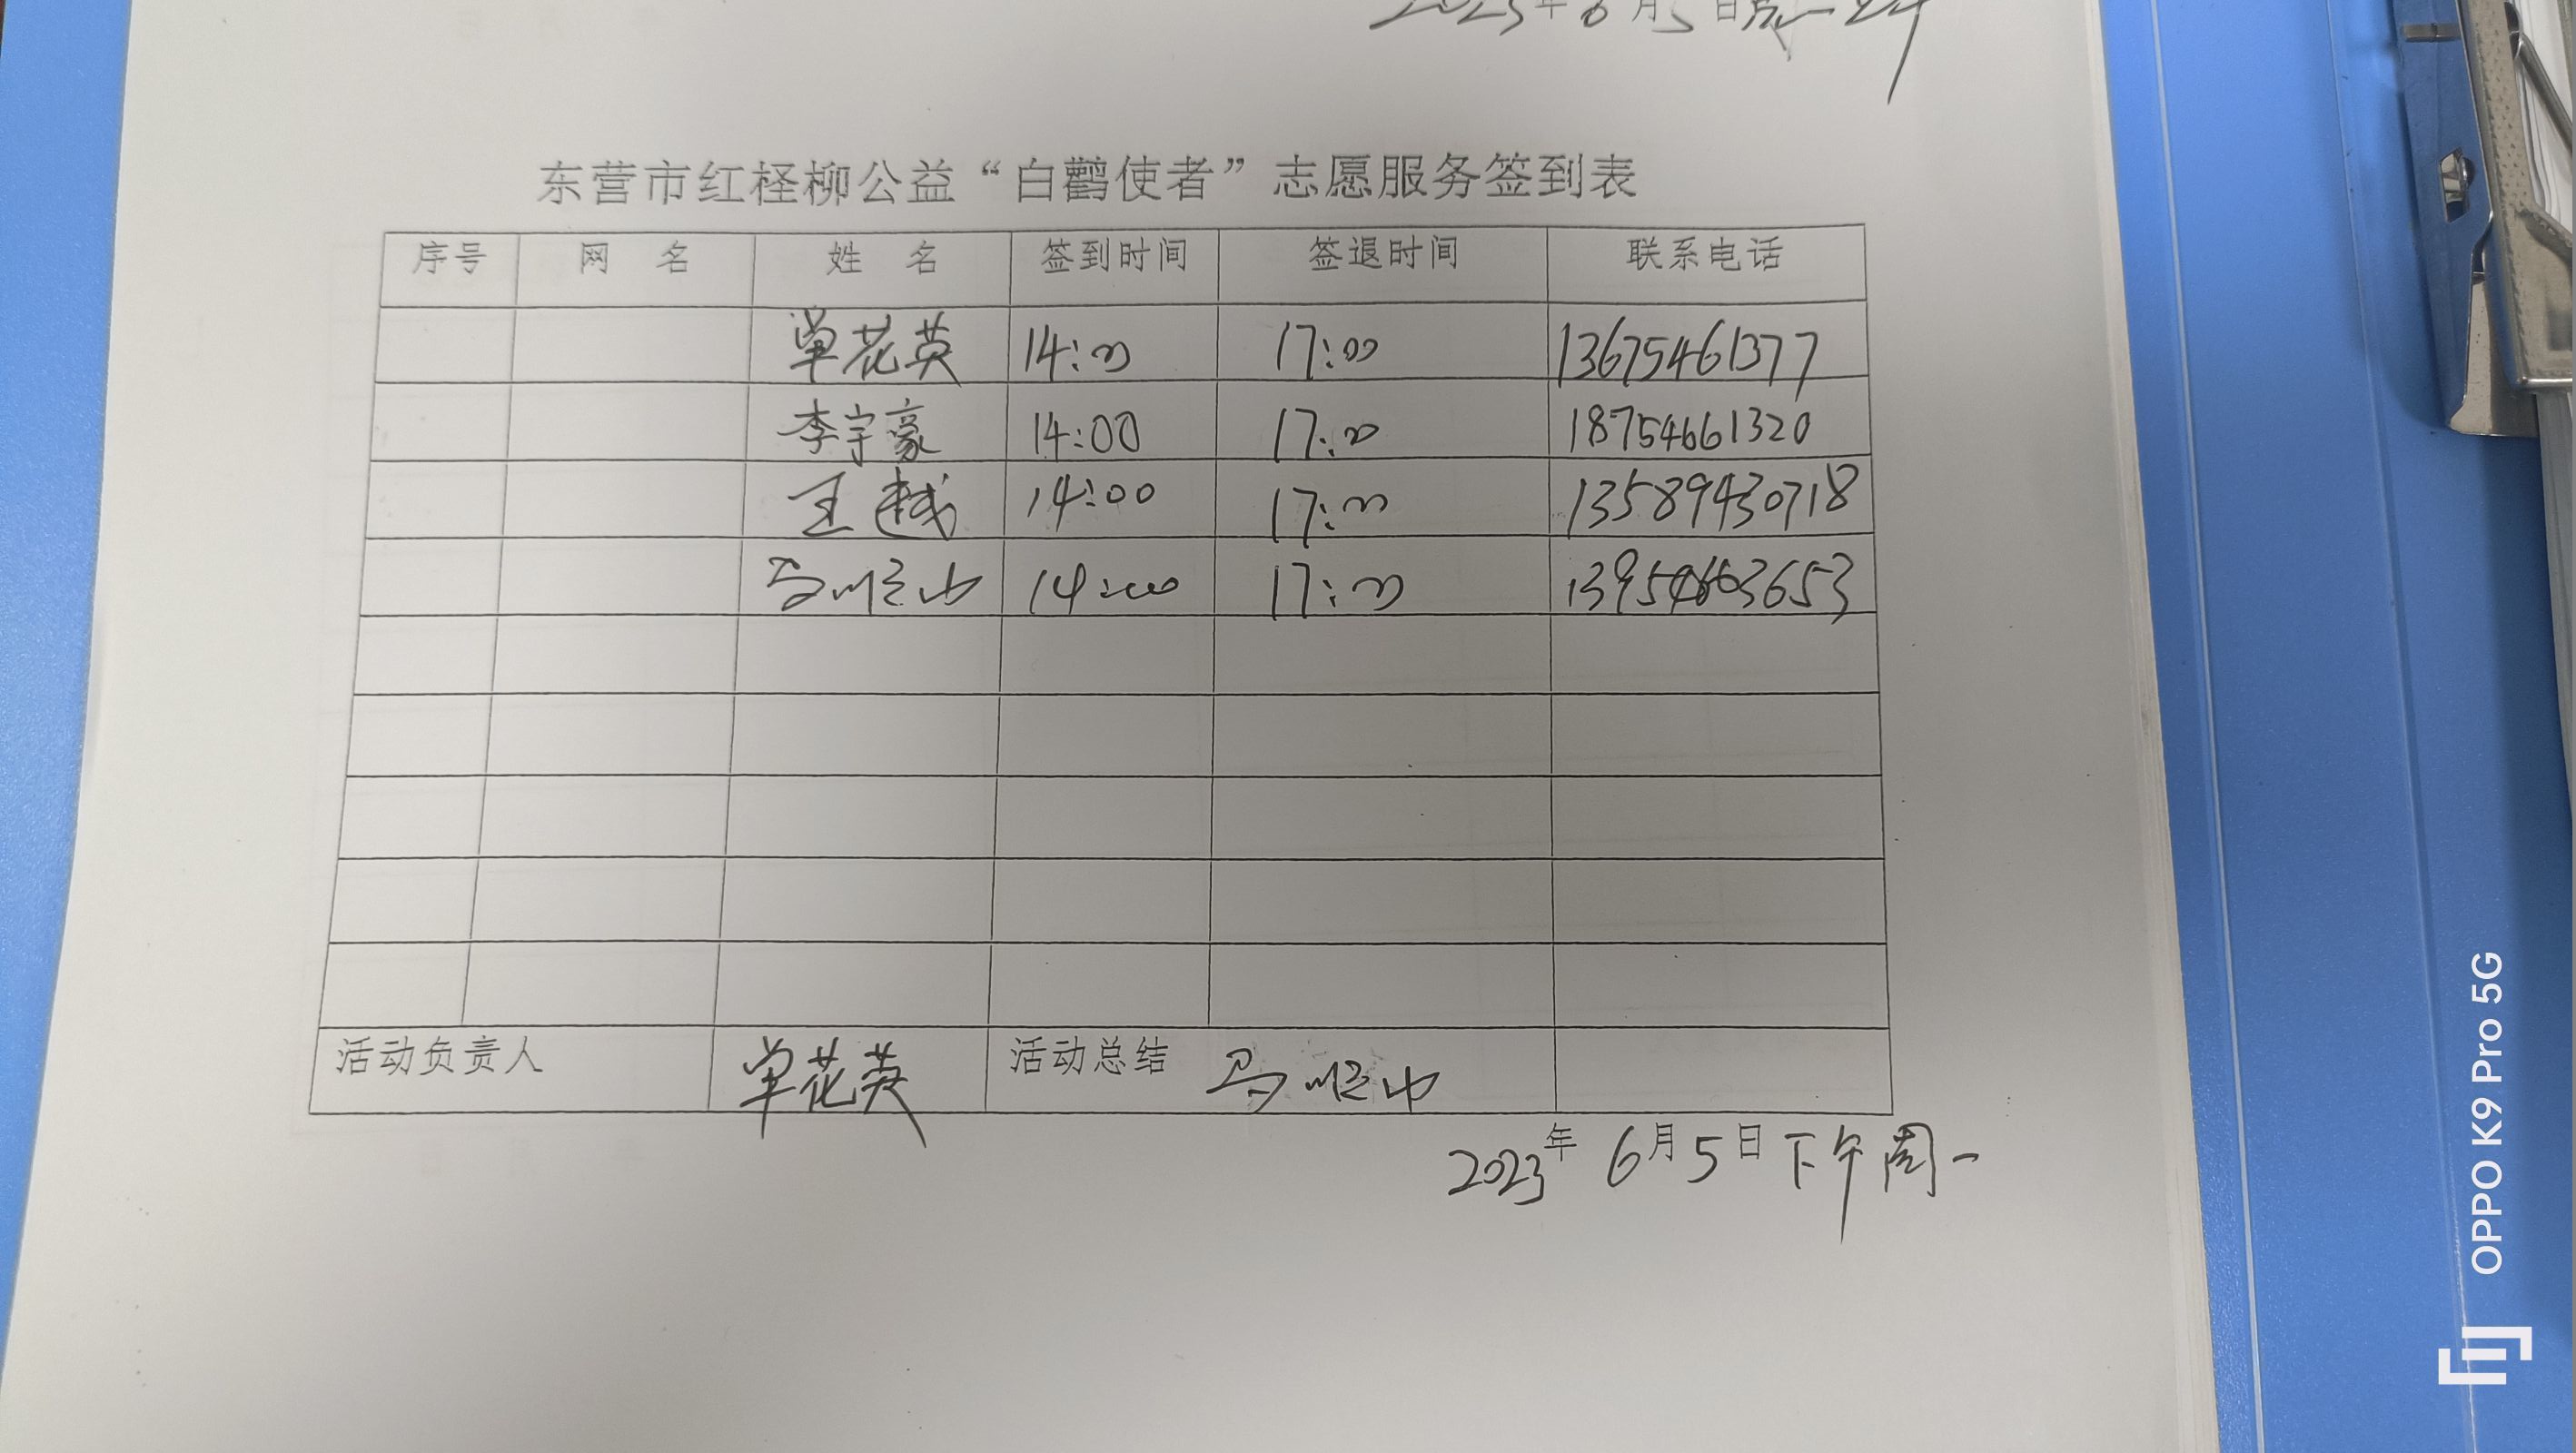 2023年6月5日
东营市红柽柳公益“白鹳使者”志愿服务签到表
序号 网 名 姓 名 签到时间 签退时间 联系电话
单花英 14:00 17:00 13675461377
李宇豪 14:00 17:00 18754661320
王越 14:00 17:00 13589430718
14:00 17:00 13954663653
活动负责人 单花英 活动总结
2023年6月5日下午周一
OPPO K9 Pro 5G